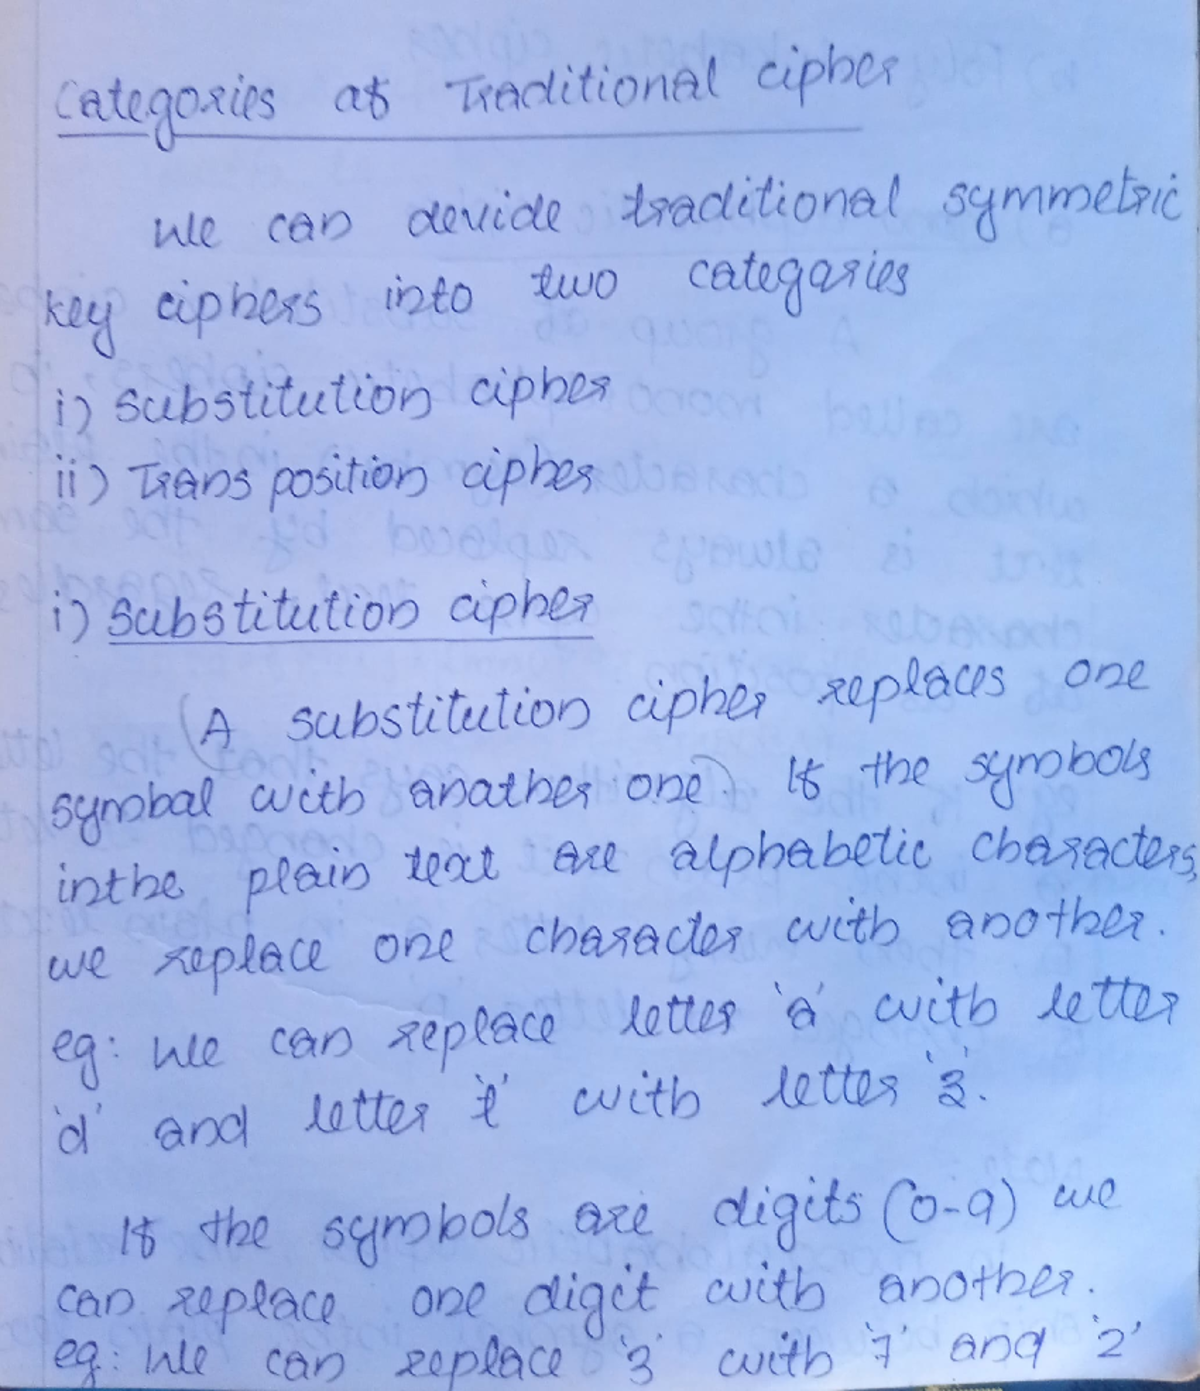 Categories of Traditional cipher
We can devide traditional symmetric
key ciphers into two categories
i) Substitution cipher
ii) Trans position cipher
i) Substitution cipher
(A substitution cipher replaces one
symbol with another one) If the symbols
inthe plain text are alphabetic characters,
we replace one character with another.
eg: We can replace letter 'a' with letter
'd' and letter 't' with letter 'z'.
If the symbols are digits (0-9) we
can replace one digit with another.
eg: We can replace '3' with '7' and '2'